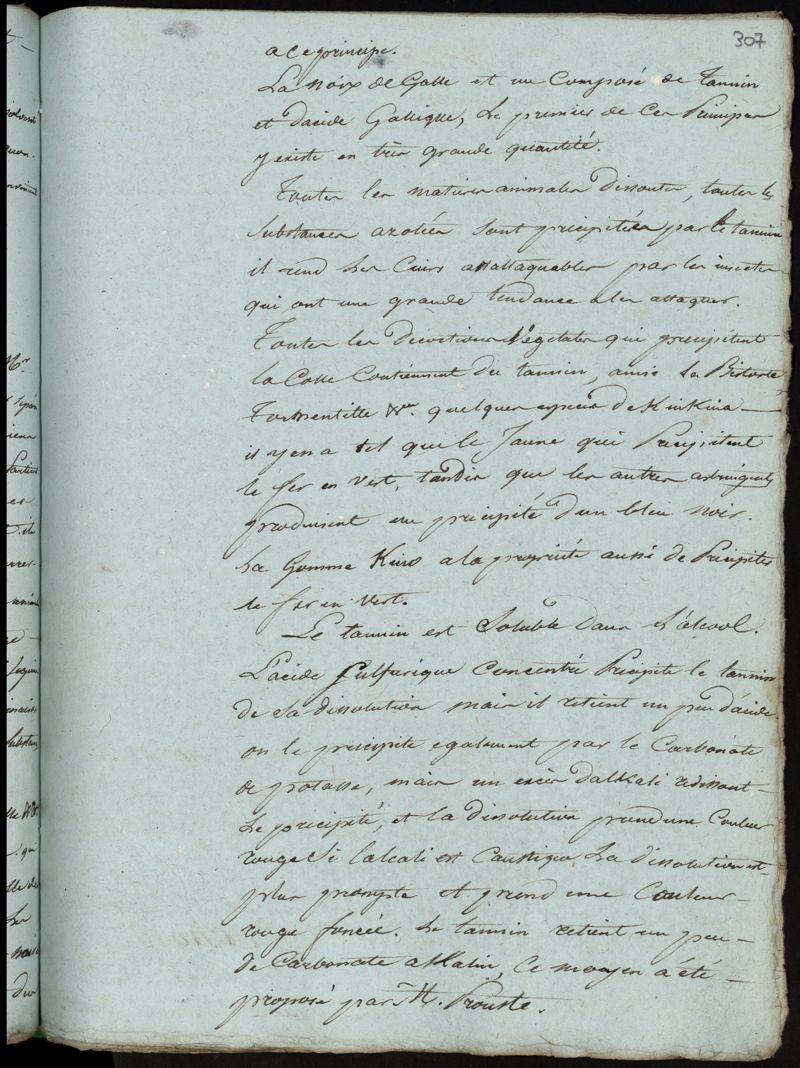 307
a ce principe.
La noix de Galle et un Composé de Tannin
et d'acide Gallique, Le premier de Ces Principes
y existe en très grande quantité.
Toutes les matieres animales dissoutes, toutes les
substances azotées sont précipitées par le tannin
il rend les Cuirs attaquables par les insectes
qui ont une grande tendance a les attaquer.
Toutes les décoctions Végétales qui précipitent
la Colle Contiennent du tannin, ainsi la Bistorte
Tormentille &ca. quelques especes de Kinkina
il y en a tel que le Jaune qui Précipitent
le fer en Vert, tandis que les autres astringents
produisent un précipité d'un bleu noir.
La Gomme Kino a la propriété aussi de Précipiter
le fer en Vert.
Le tannin est Soluble dans l'alcool.
L'acide Sulfurique Concentré Précipite le tannin
de sa dissolution mais il retient un peu d'acide.
on le précipite egalement par le Carbonate
de potasse, mais un excès d'alkali redissout
le précipité, et la dissolution prend une Couleur
rouge Si l'alcali est Caustique La dissolution est
plus prompte et prend une Couleur
rouge foncée. Le tannin retient un peu
de Carbonate alkalin, Ce moyen a été
proposé par M. Prouste.